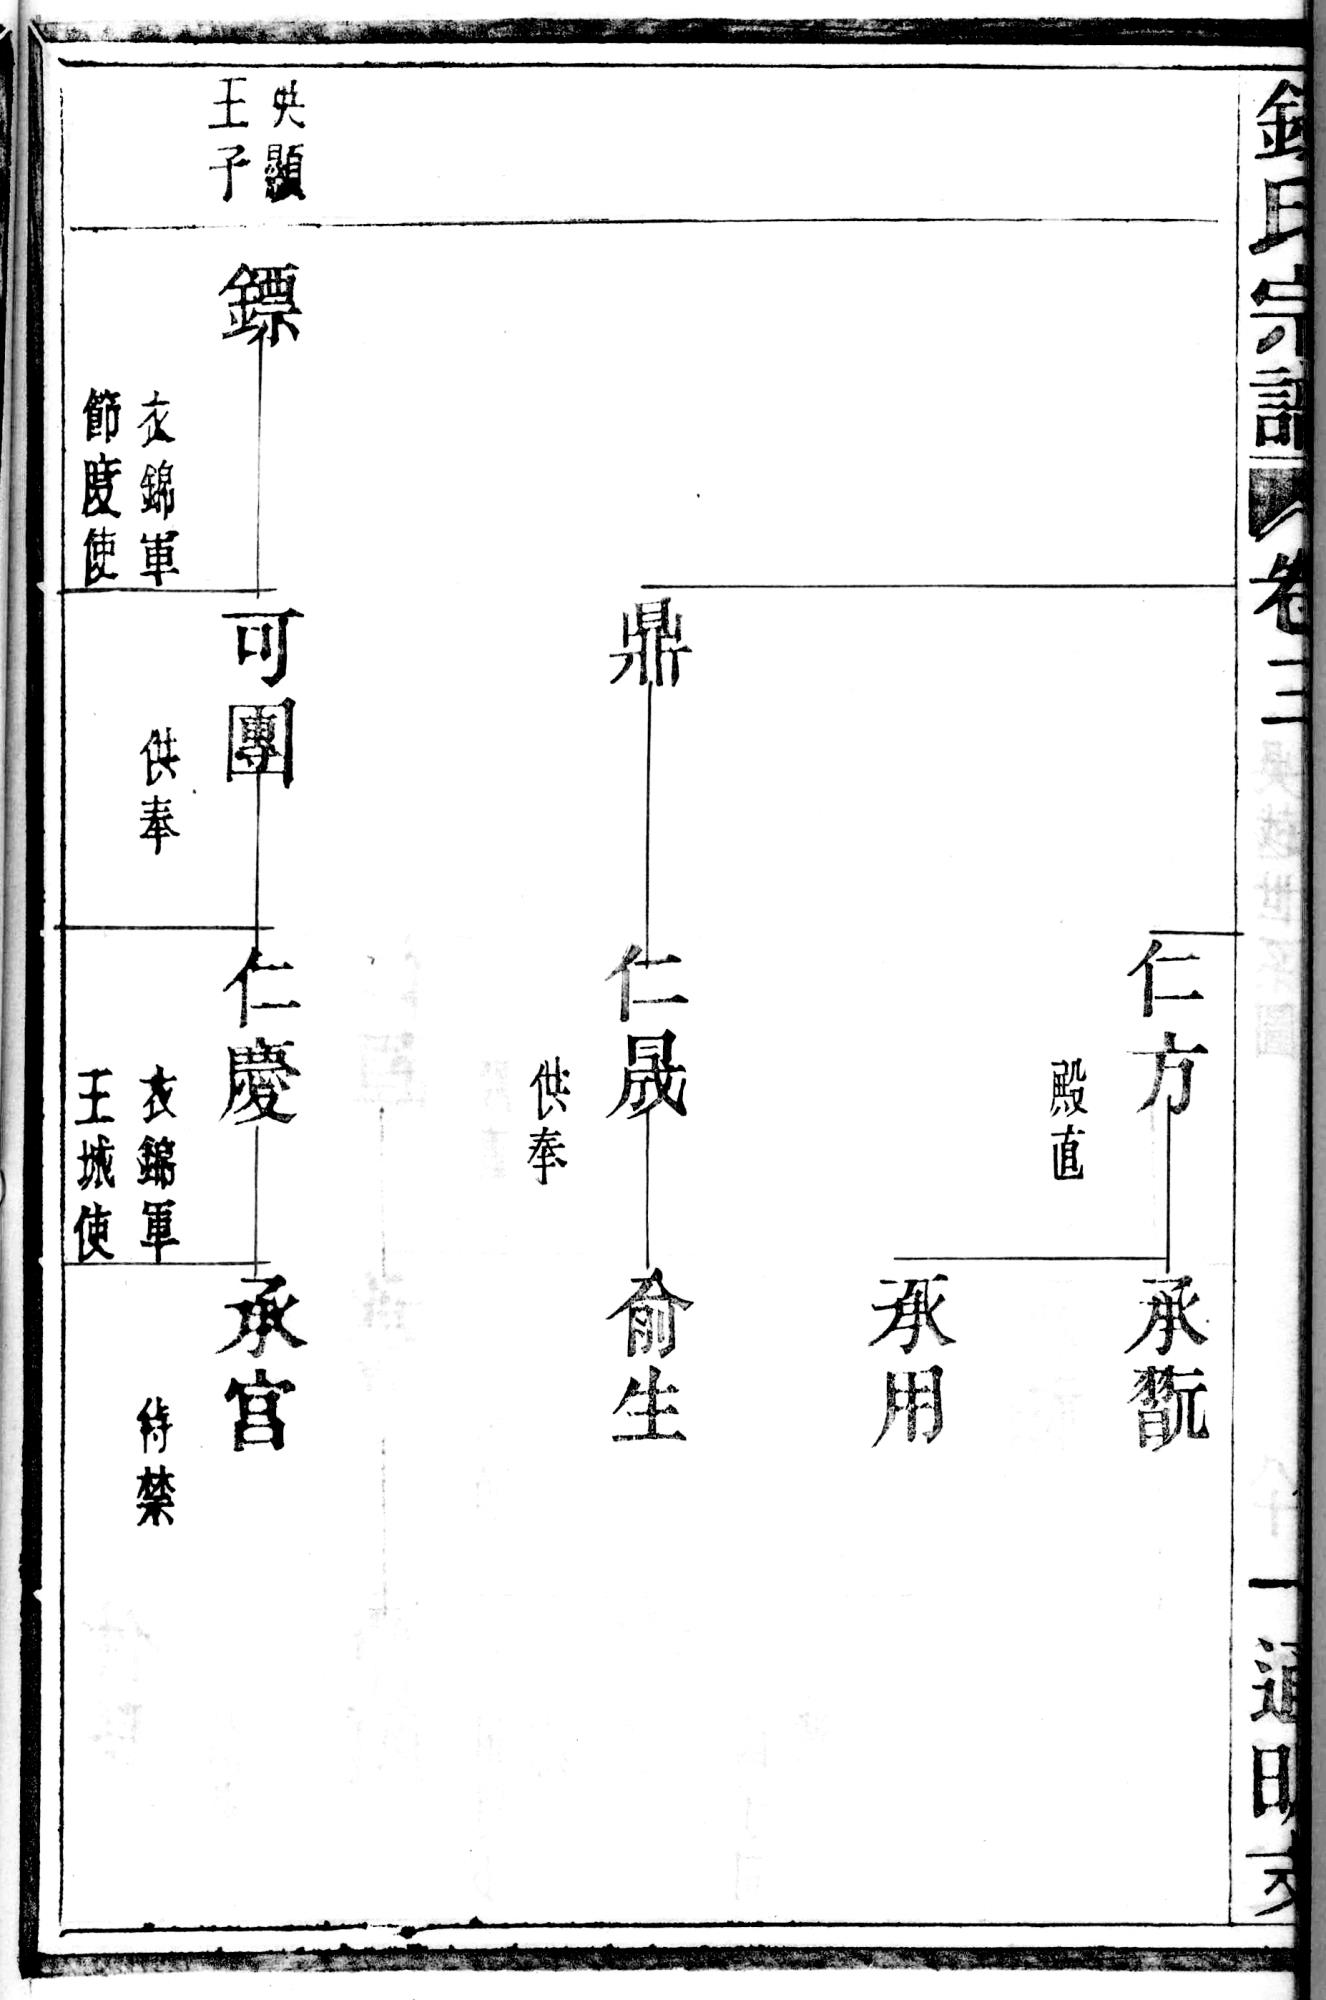 錢氏宗譜
卷三
一
通明
仁方
殿直
承
承用
鼎
仁晟
供奉
俞生
英顯
王子
鏢
衣錦軍
節度使
可團
供奉
仁慶
衣錦軍
王城使
承宮
侍禁